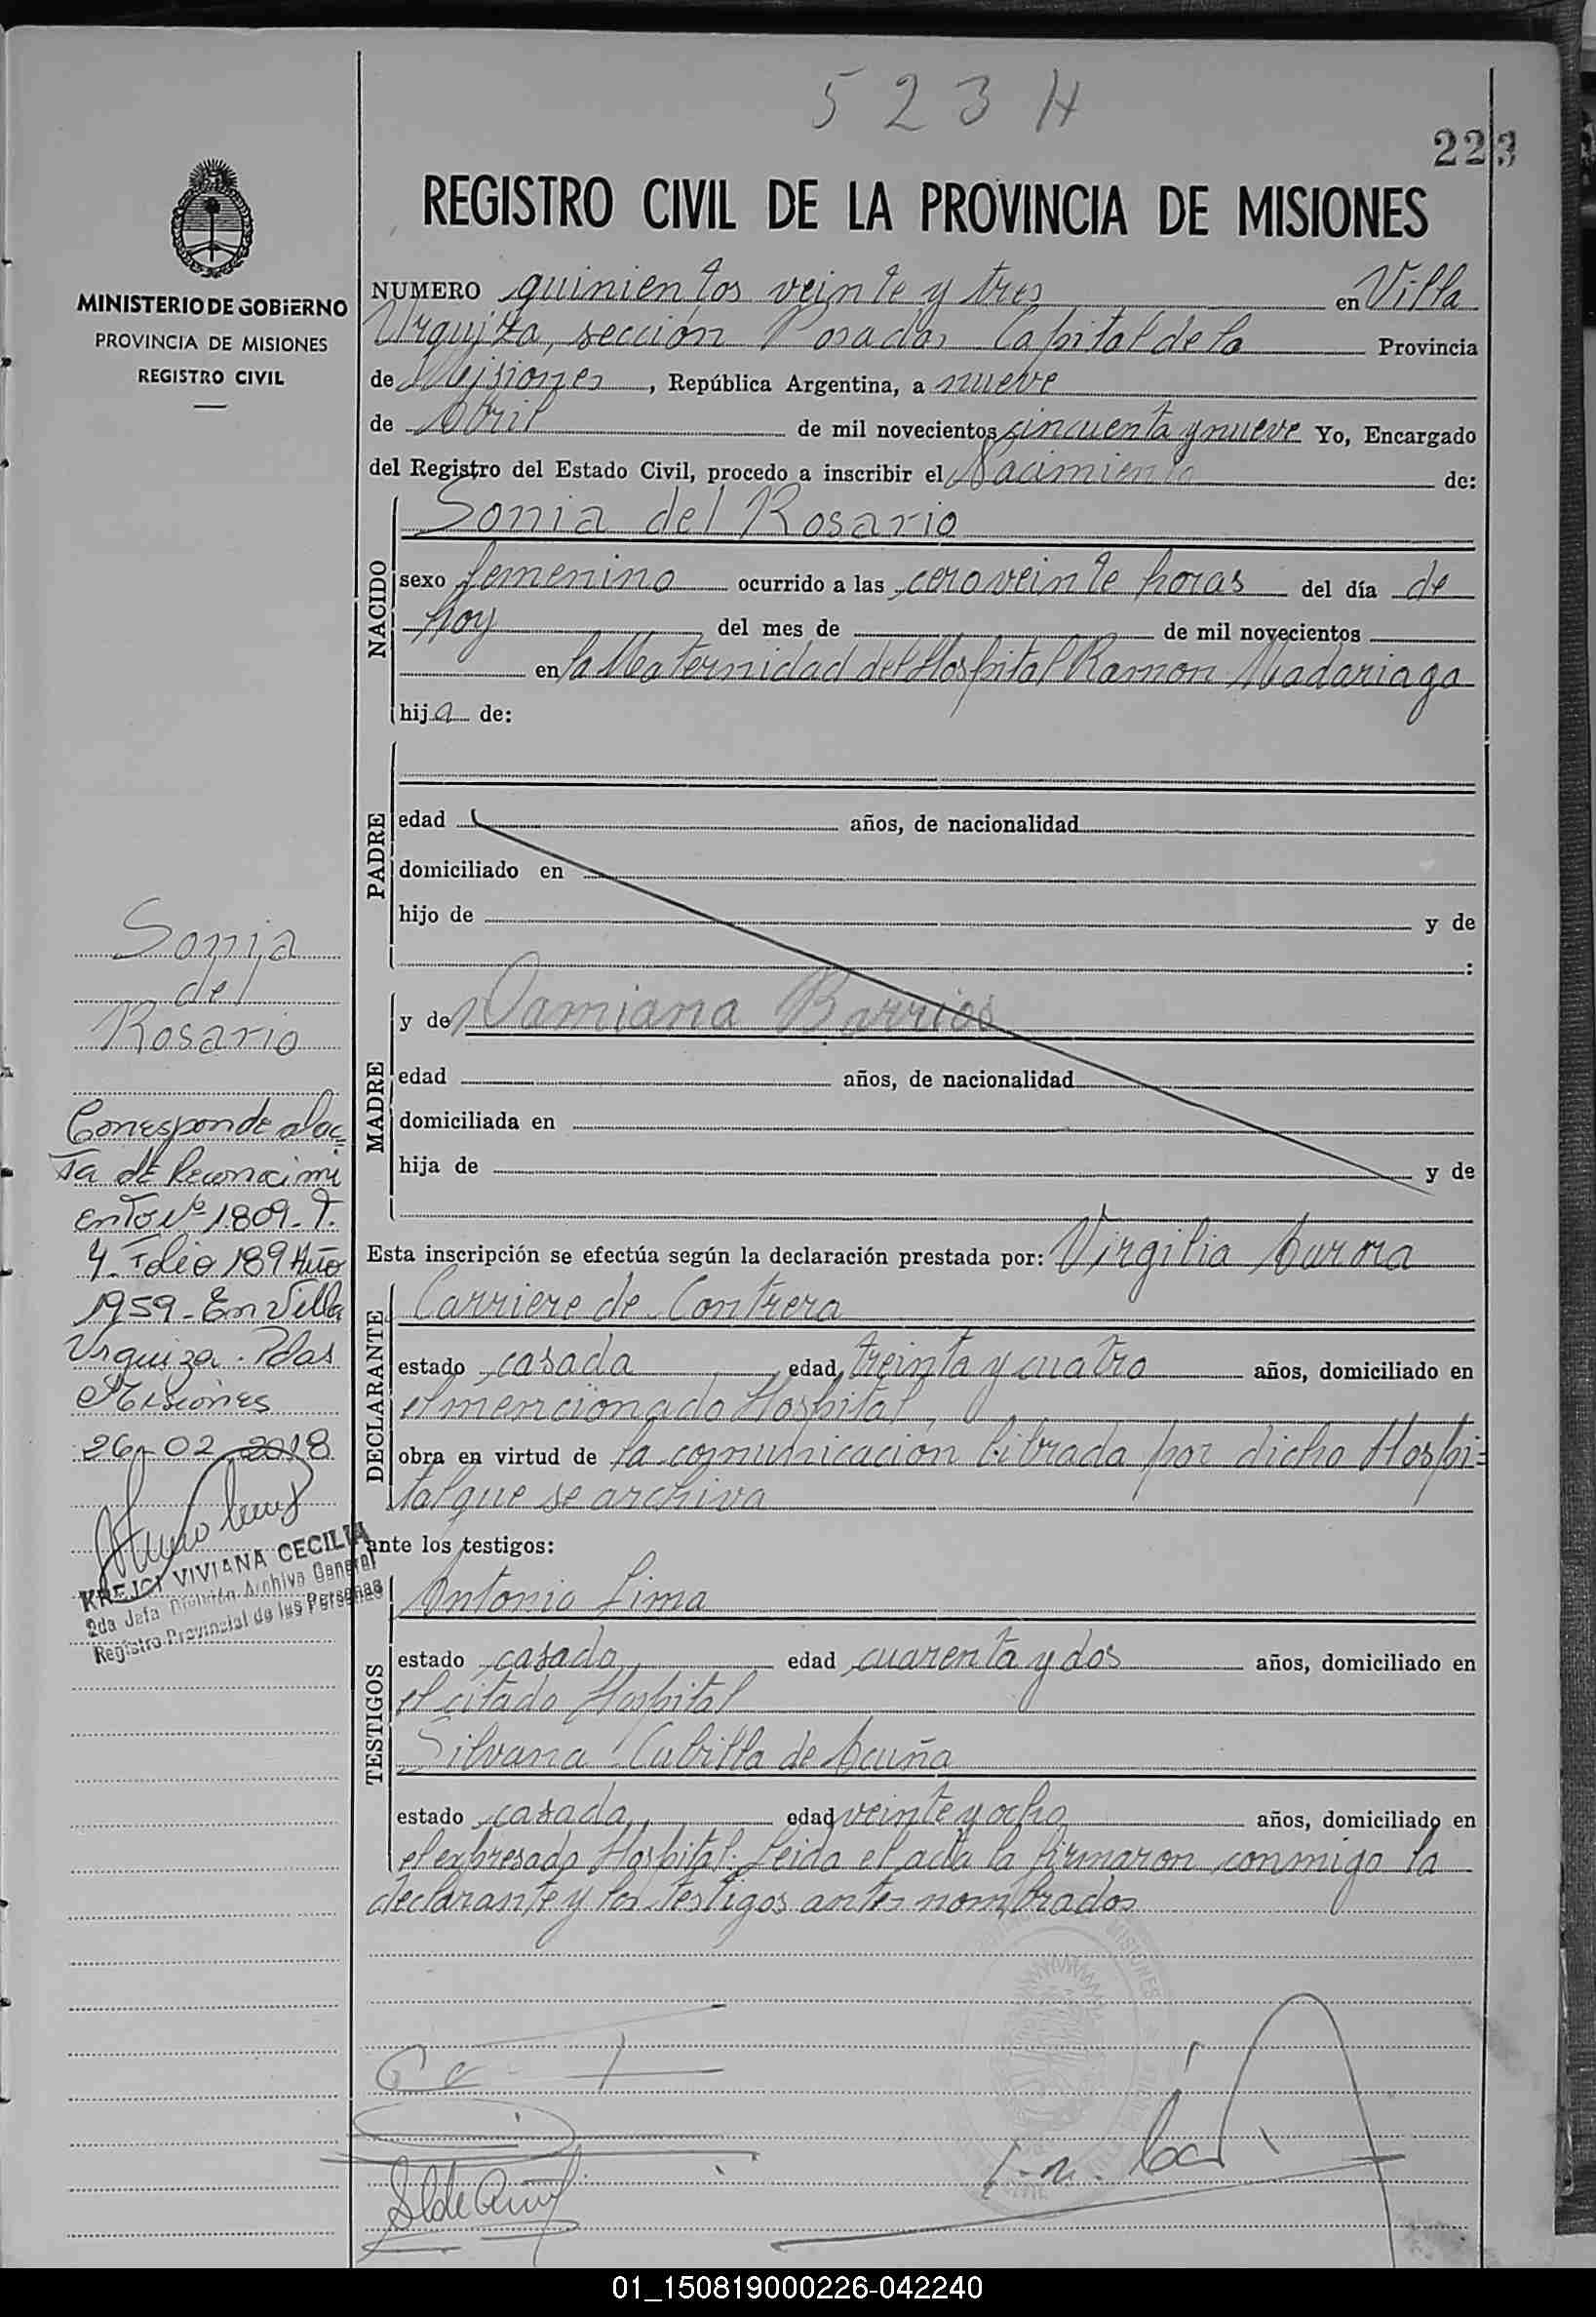 523 H
223
REGISTRO CIVIL DE LA PROVINCIA DE MISIONES
MINISTERIO DE GOBIERNO
PROVINCIA DE MISIONES
REGISTRO CIVIL
NUMERO quinientos veinte y tres en Villa
Urquiza, sección Posadas Capital de la Provincia
de Misiones, República Argentina, a nueve
de Abril de mil novecientos cincuenta y nueve Yo, Encargado
del Registro del Estado Civil, procedo a inscribir el Nacimiento de:
NACIDO
Sonia del Rosario
sexo femenino ocurrido a las cero veinte horas del día de
hoy del mes de de mil novecientos
en la Maternidad del Hospital Ramon Madariaga
hija de:
PADRE
edad años, de nacionalidad
domiciliado en
hijo de y de
:
MADRE
y de Damiana Barrios
edad años, de nacionalidad
domiciliada en
hija de y de
Esta inscripción se efectúa según la declaración prestada por: Virgilia Aurora
DECLARANTE
Carriere de Contrera
estado casada edad treinta y cuatro años, domiciliado en
el mencionado Hospital,
obra en virtud de la comunicación librada por dicho Hospi=
tal que se archiva
ante los testigos:
TESTIGOS
Antonio Lima
estado casado, edad cuarenta y dos años, domiciliado en
el citado Hospital
Silvana Cubilla de Acuña
estado casada, edad veinte y ocho años, domiciliado en
el expresado Hospital. Leida el acta la firmaron conmigo la
declarante y los testigos antes nombrados
Sonia
del
Rosario
Corresponde al ac-
ta de Reconocimi
ento Nº 1809-T.
4. Folio 189 Año
1959-En Villa
Urquiza. Pdas
Misiones
26-02-2018
KREJCI VIVIANA CECILIA
2da Jefa División Archivo General
Registro Provincial de las Personas
01_150819000226-042240